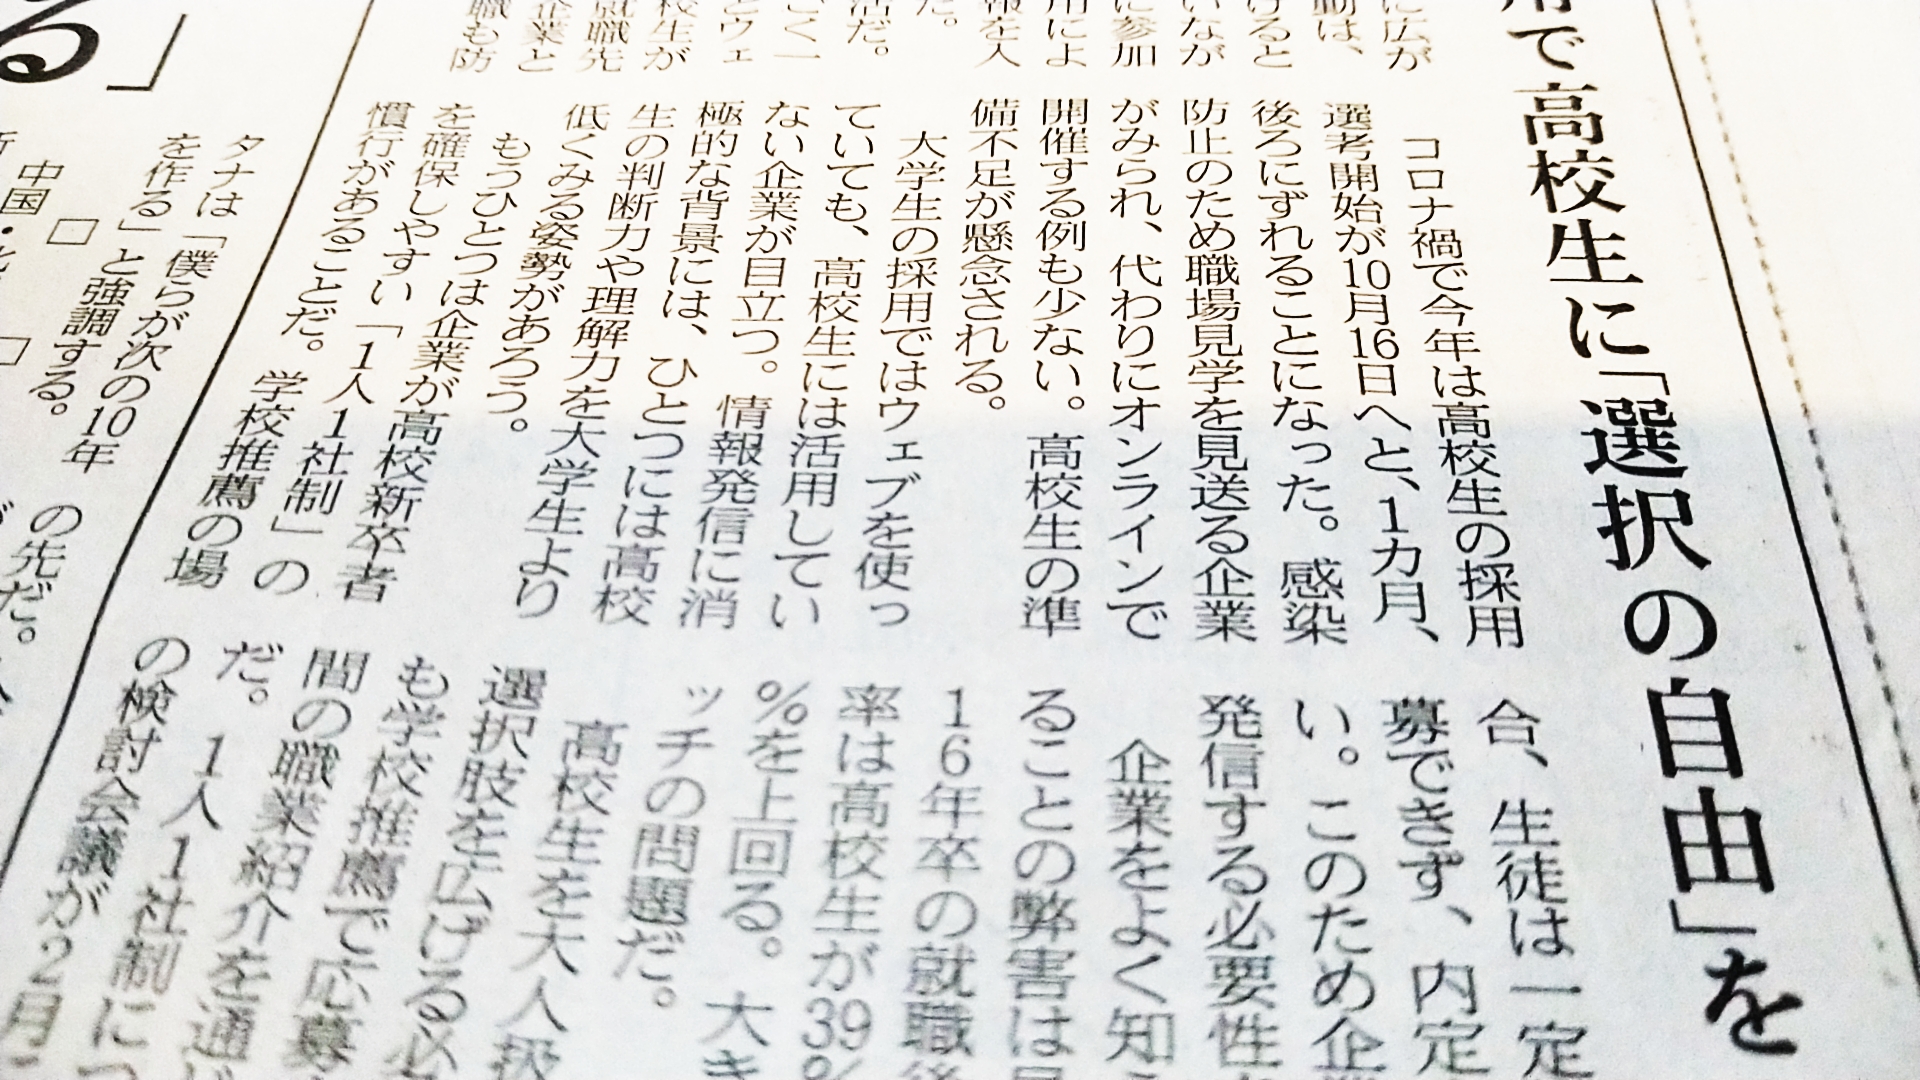 用で高校生に「選択の自由」を
に広が
動は、
けると
いなが
に参加
用によ
報を入
た。
活だ。
ごく一
とウェ
校生が
就職先
企業と
職も防
コロナ禍で今年は高校生の採用
選考開始が10月16日へと、1カ月、
後ろにずれることになった。感染
防止のため職場見学を見送る企業
がみられ、代わりにオンラインで
開催する例も少ない。高校生の準
備不足が懸念される。
大学生の採用ではウェブを使っ
ていても、高校生には活用してい
ない企業が目立つ。情報発信に消
極的な背景には、ひとつには高校
生の判断力や理解力を大学生より
低くみる姿勢があろう。
もうひとつは企業が高校新卒者
を確保しやすい「1人1社制」の
慣行があることだ。学校推薦の場
合、生徒は一定
募できず、内定
い。このため企
発信する必要性
企業をよく知
ることの弊害は
16年卒の就職
率は高校生が39
%を上回る。大き
ッチの問題だ。
高校生を大人扱
選択肢を広げる必
も学校推薦で応募
間の職業紹介を通
だ。1人1社制につ
の検討会議が2月
る」
タナは「僕らが次の10年
を作る」と強調する。
□ □
中国・
の先だ。